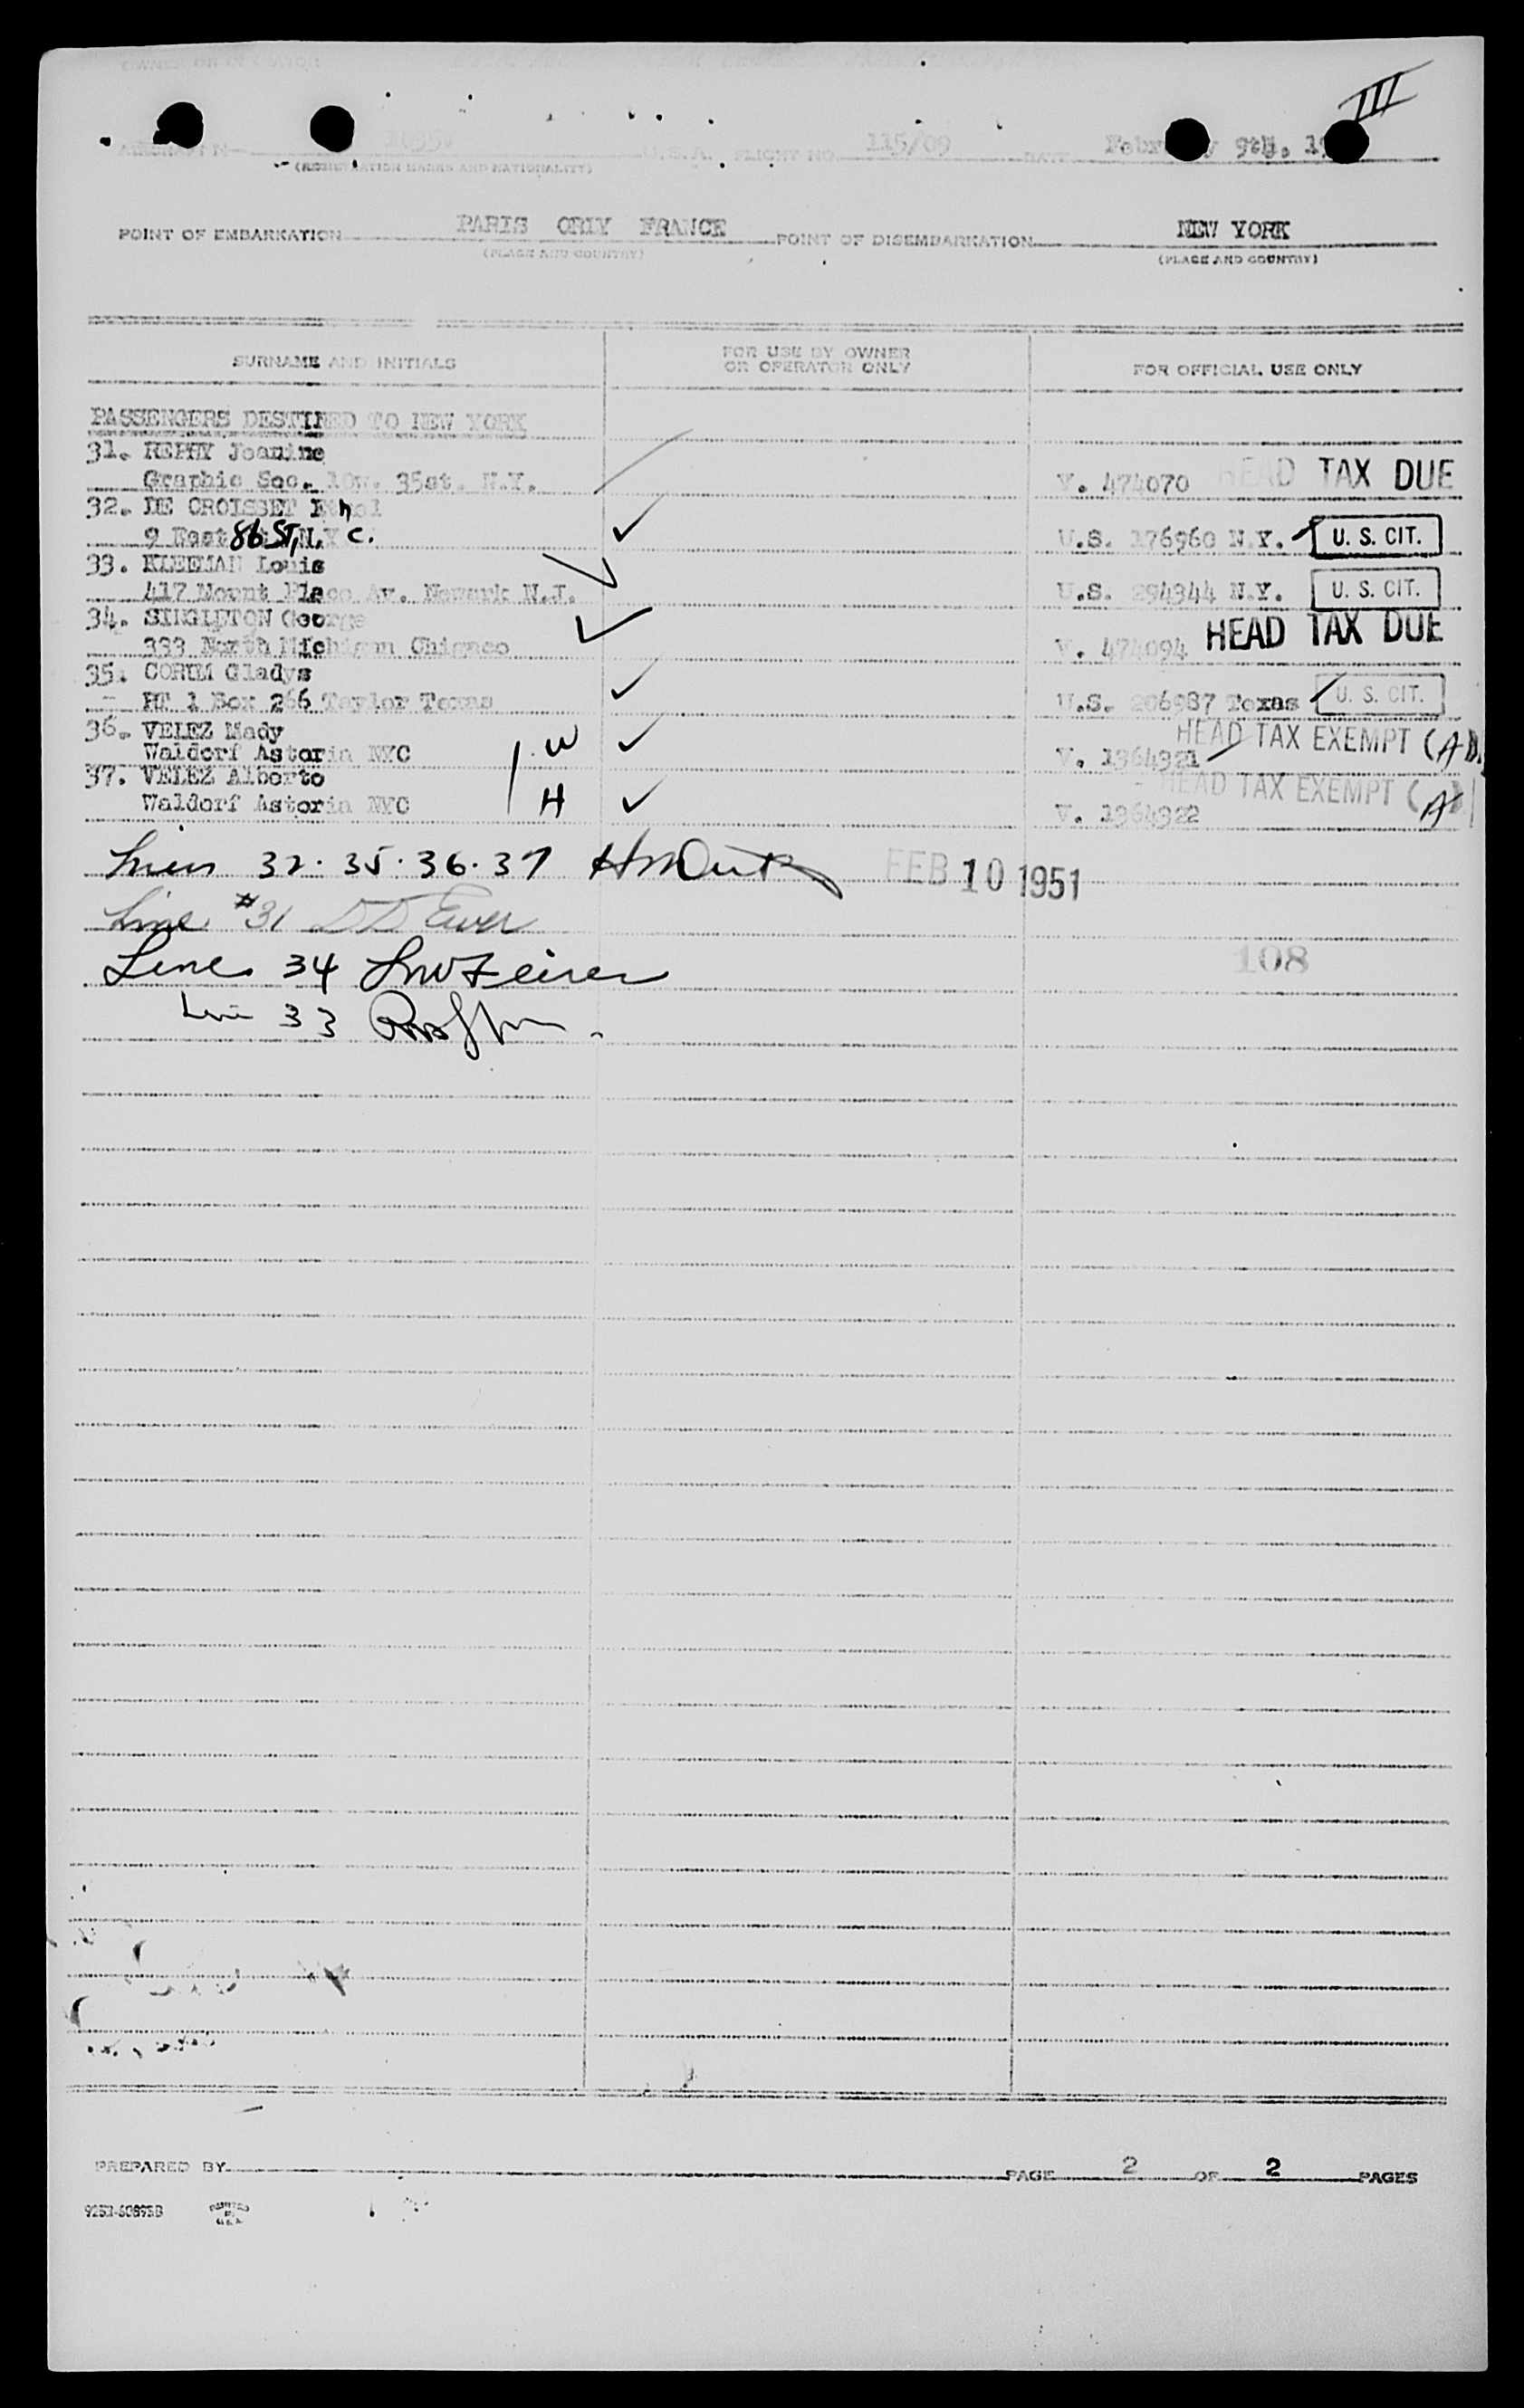 OWNER OR OPERATOR
III
AIRCRAFT N 1095V U.S.A. FLIGHT NO. 115/09 DATE February 9th, 19
(REGISTRATION MARKS AND NATIONALITY)
POINT OF EMBARKATION PARIS ORLY FRANCE POINT OF DISEMBARKATION NEW YORK
(PLACE AND COUNTRY) (PLACE AND COUNTRY)
SURNAME AND INITIALS FOR USE BY OWNER OR OPERATOR ONLY FOR OFFICIAL USE ONLY
PASSENGERS DESTINED TO NEW YORK
31. REPHY Joanine
Graphic Soc. 10w. 35st. N.Y. V. 474070 HEAD TAX DUE
32. DE CROISSET Ethel
9 East 86 ST, N.Y C. U.S. 176960 N.Y. U. S. CIT.
33. KLEEMAN Louis
417 Mount Place Av. Newark N.J. U.S. 294344 N.Y. U. S. CIT.
34. SINGLETON George
333 North Michigan Chigaco V. 474094 HEAD TAX DUE
35. CORUM Gladys
RT 1 Box 266 Taylor Texas U.S. 206987 Texas U. S. CIT.
36. VELEZ Mady
Waldorf Astoria NYC W V. 1364321 HEAD TAX EXEMPT (A)
37. VELEZ Alberto
Waldorf Astoria NYC H V. 1364322 HEAD TAX EXEMPT (A)
Lines 32. 35. 36. 37 FEB 10 1951
Line #31
Line 34 108
Line 33
PREPARED BY PAGE 2 OF 2 PAGES
PRINTED IN U.S.A.